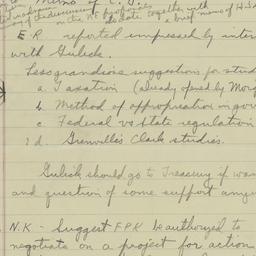 Memo of C.
of the discussion
on the N.K. to date together with
a brief memo of
E R reported impressed by inter
with Gulick.
Less grandiose suggestions for stud
a. Taxation (already opened by Morg
b. Method of appropriation in gov
c. Federal vs State regulation
d. Grenville's Clark studies.
Gulick should go to Treasury if wan
and question of some support
N.K - Suggest FPK be authorized to
negotiate on a project for action